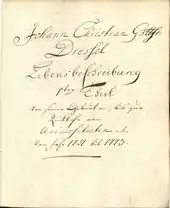 Johann Christian Gottfr.
Dressel
Lebensbeschreibung
1ter Theil
von seiner Geburt an, bis zur
Rükkehr von
Universitäten oder
vom Jahr 1751 bis 1773.